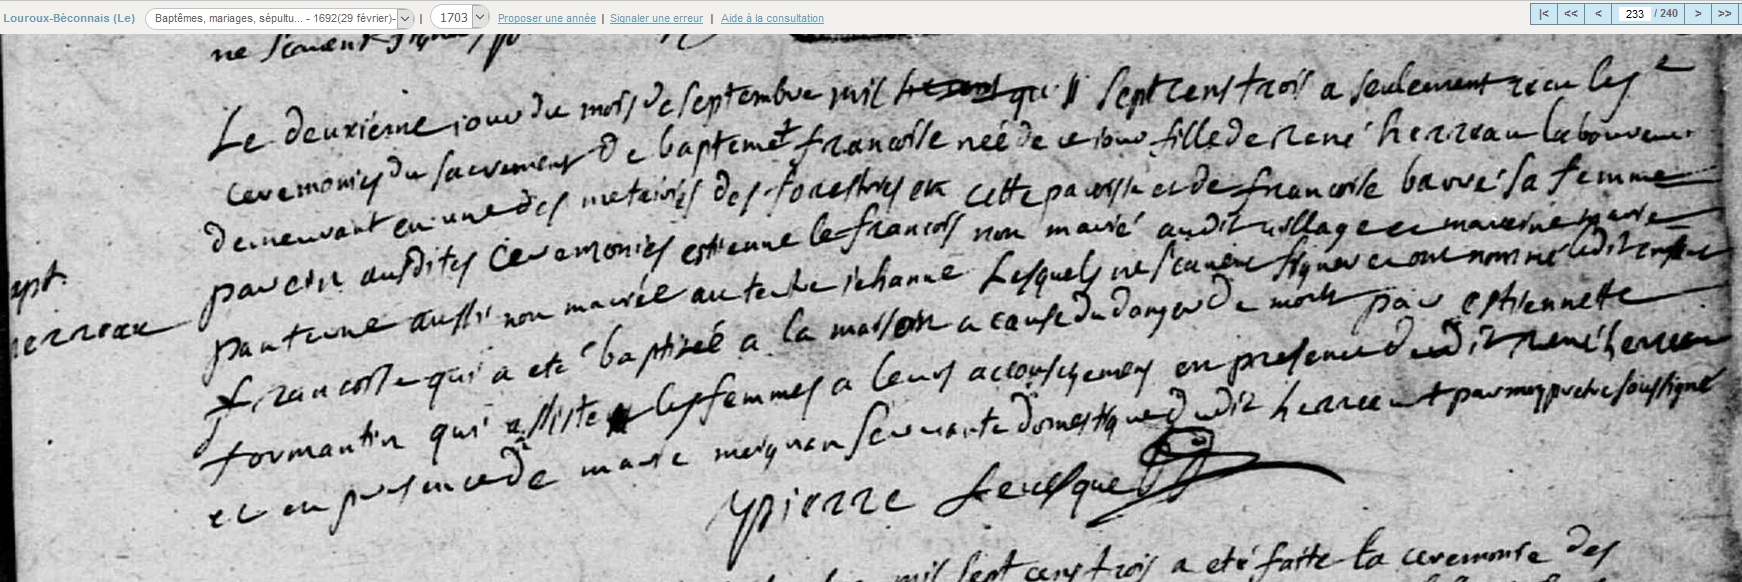 Louroux-Béconnais (Le) Baptêmes, mariages, sépultu... - 1692(29 février)- | 1703 Proposer une année | Signaler une erreur | Aide à la consultation |< << < 233 / 240 > >>
ne scavent signer
Le deuxiéme jour du mois de septembre mil sept cens trois a seulement receu les
ceremonies du sacrement de bapteme francoise néé de ce jour fille de rené herreau laboureur
demeurant en une des metairies des forestries en cette paroisse et de francoise barré sa femme
parein ausdites ceremonies estienne le francois non marié audit village et mareine marie
pauteune aussi non mariée au tertre jehanne Lesquels ne scavent signer et ont nommé ledit enfant
francoise qui a eté baptizéé a la maison a cause du danger de mort par estiennette
tormantin qui assiste les femmes a leurs accouschemens en presence dudit rené herreau
et en presence de marie meignan servante domestique dudit herreau et par moy pretre soussigné
apt.
herreau
pierre Levesque
mil sept cens trois a eté faite la ceremonie des